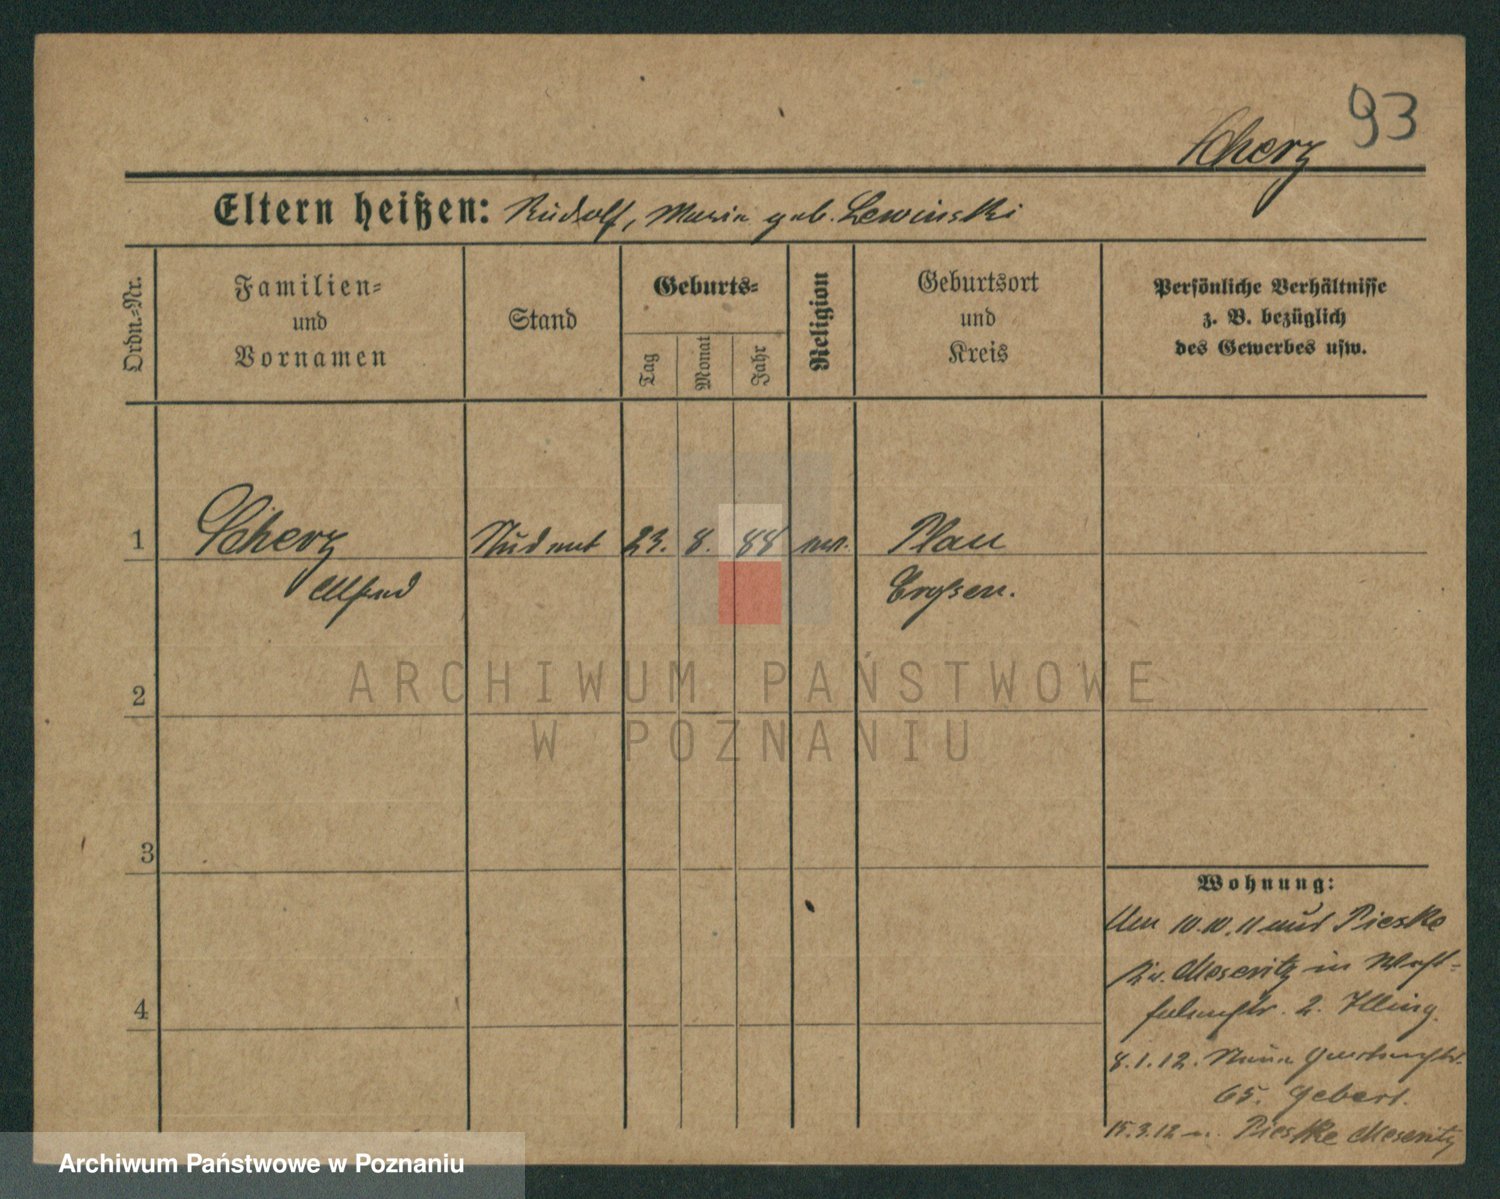 93
Scherz
Eltern heißen: Rudolf, Maria geb. Lewinski
Ordn.=Nr.
Familien=
und
Vornamen
Stand
Geburts=
Tag
Monat
Jahr
Religion
Geburtsort
und
Kreis
Persönliche Verhältnisse
z. B. bezüglich
des Gewerbes usw.
1 Scherz Student 23. 8. 88 ev. Plau
Alfred Croßen.
2
3
4
Wohnung:
Am 10.10.11 aus Pieske
Kr. Meseritz in West=
falenstr. 2. Illing.
8.1.12. Neue Gartenstr.
65. Gebert.
15.3.12 n. Pieske Meseritz
ARCHIWUM PAŃSTWOWE
W POZNANIU
Archiwum Państwowe w Poznaniu